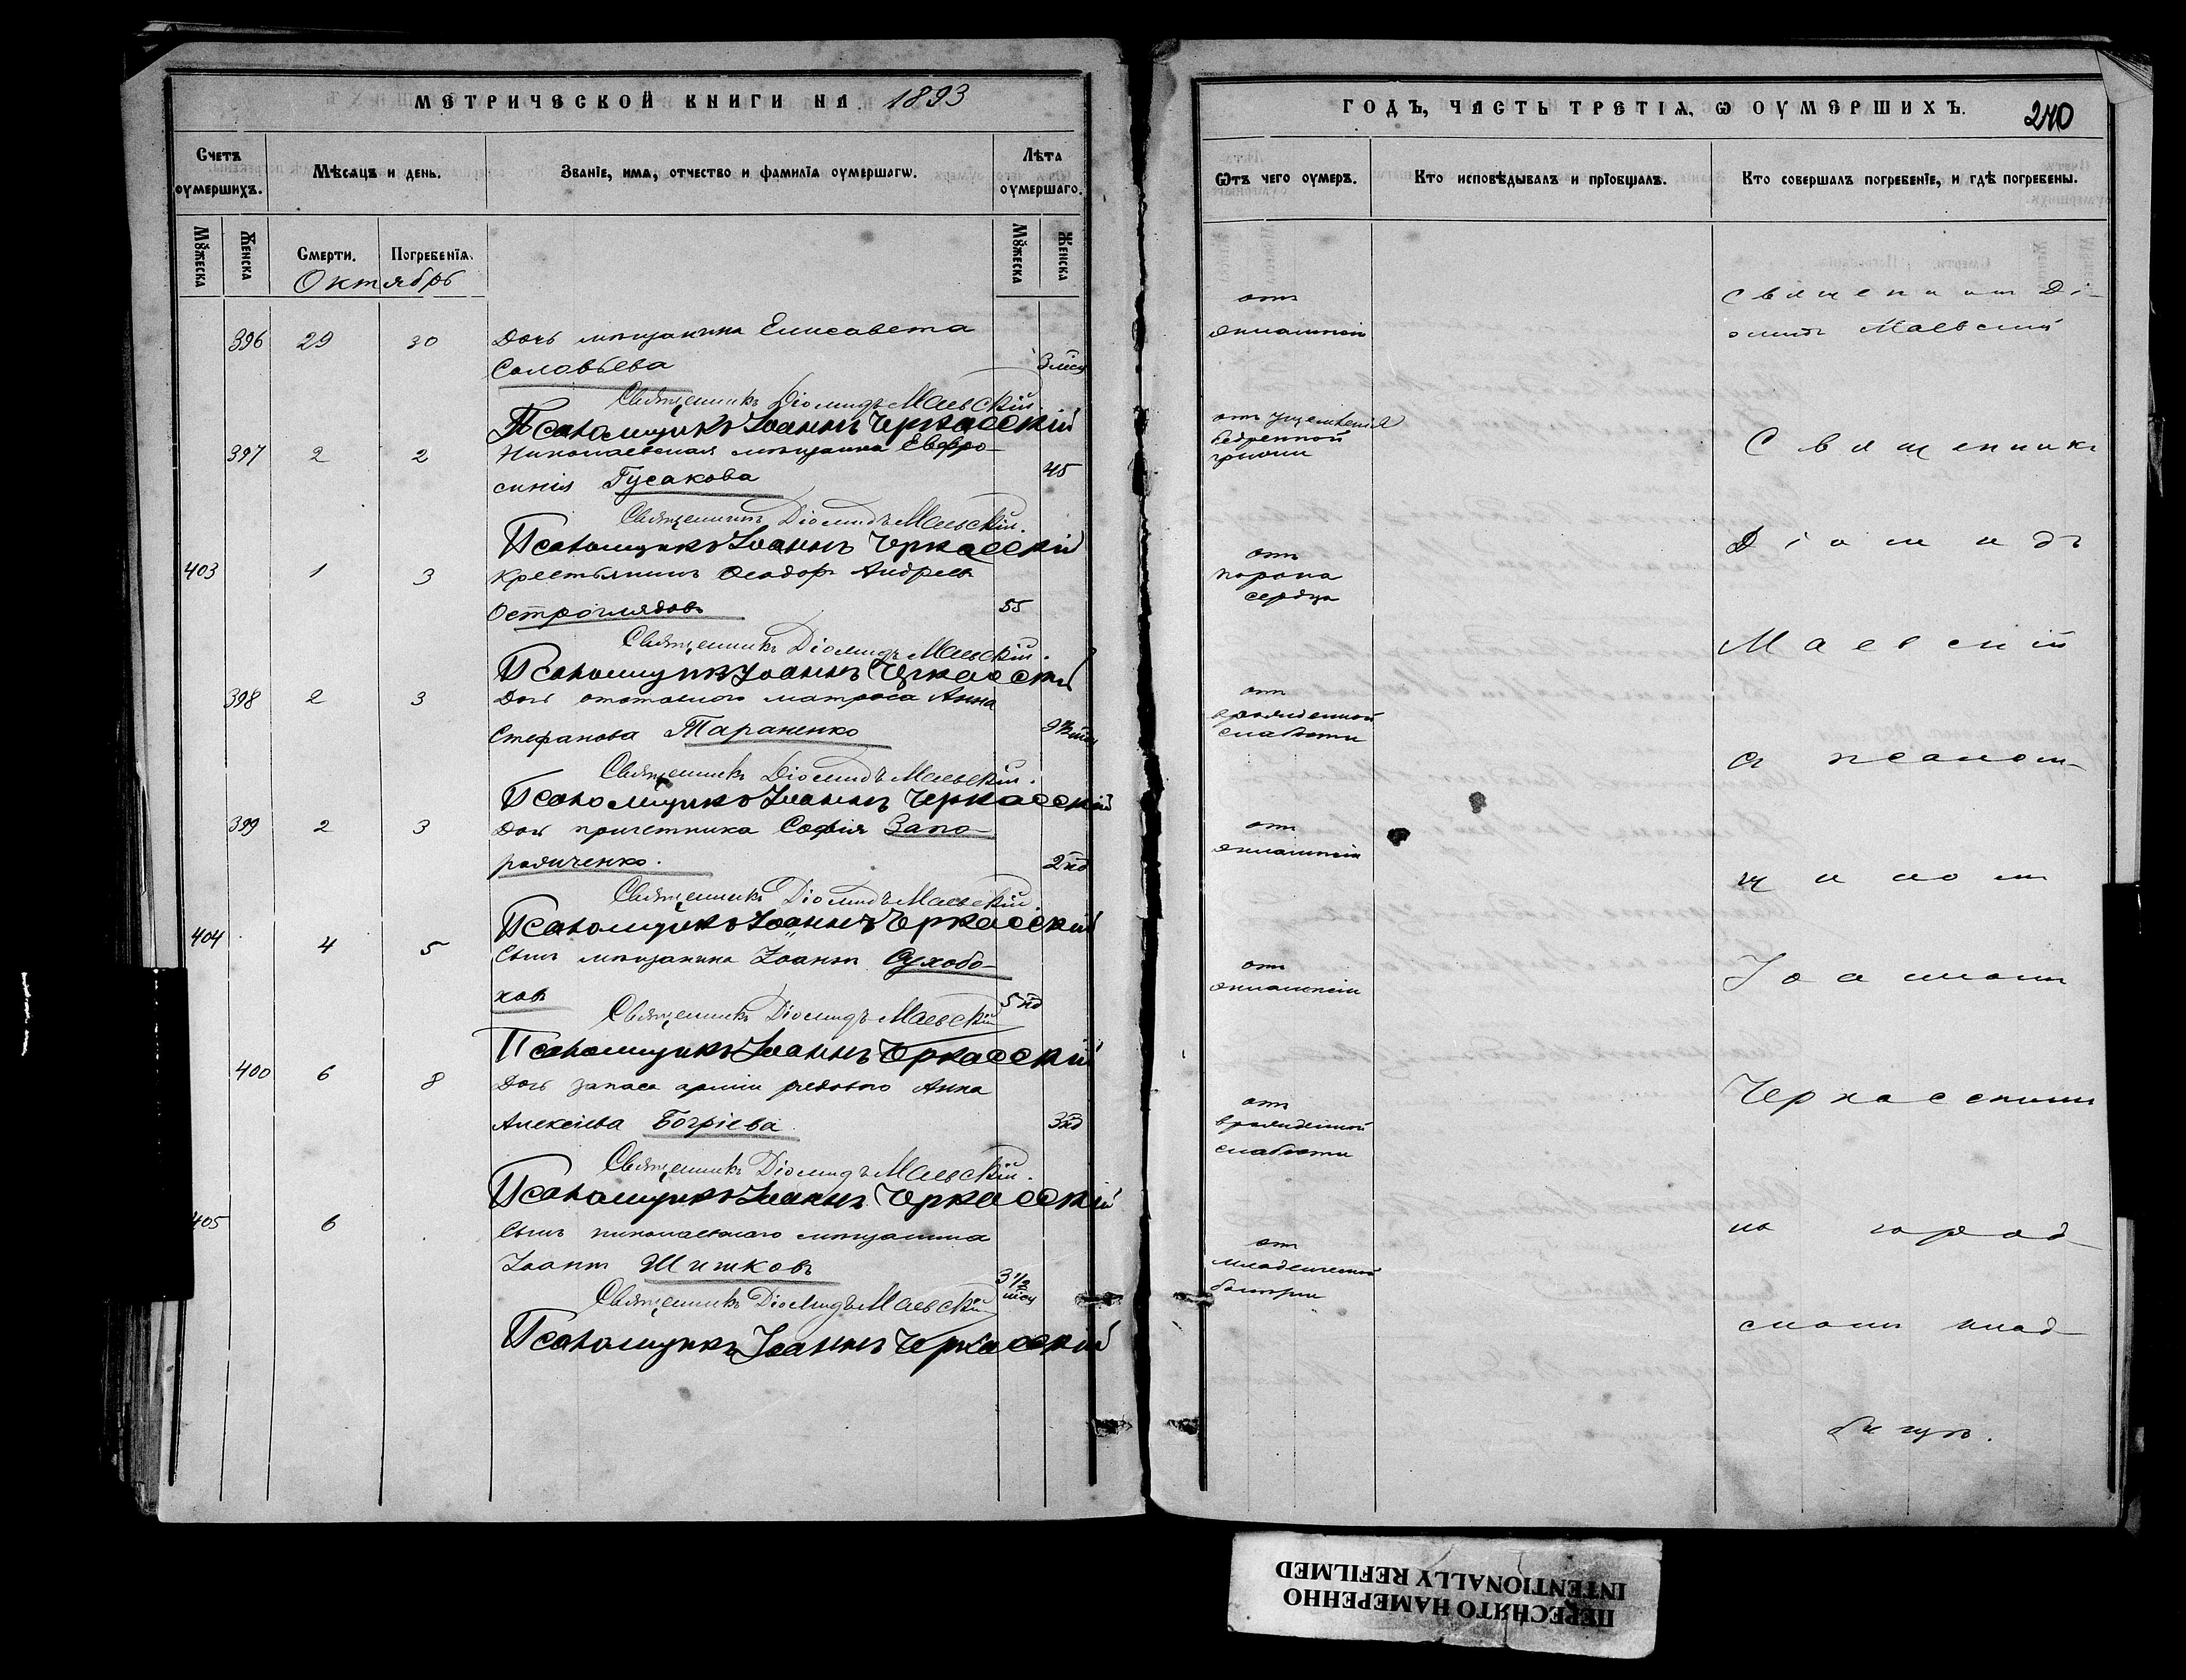 МЕТРИЧЕСКОЙ КНИГИ НА 1893
Счетъ оумершихъ.
Мѣсяцъ и день.
Званіе, имя, отчество и фамилія оумершагѡ.
Лѣта оумершаго.
Мꙋжеска
Женска
Смерти.
Погребенія.
Мꙋжеска
Женска
Октябрь
396 29 30 Дочь мѣщанина Елисавета
Соловьева 3 мѣс
Священникъ Діомидъ Маевскій.
Псаломщикъ Іоаннъ Черкасскій
397 2 2 Николаевская мѣщанка Евфро-
синія Гусакова 45
Священникъ Діомидъ Маевскій.
Псаломщикъ Іоаннъ Черкасскій
403 1 3 Крестьянинъ Ѳеодоръ Андреевъ
Остроглядовъ 55
Священникъ Діомидъ Маевскій.
Псаломщикъ Іоаннъ Черкасскій
398 2 3 Дочь отставного матроса Анна
Стефанова Тараненко
Священникъ Діомидъ Маевскій.
Псаломщикъ Іоаннъ Черкасскій
399 2 3 Дочь причетника Софія Запо-
рожченко. 2 нд
Священникъ Діомидъ Маевскій
Псаломщикъ Іоаннъ Черкасскій
404 4 5 Сынъ мѣщанина Іоаннъ Сухобо-
ковъ 5 нд
Священникъ Діомидъ Маевскій
Псаломщикъ Іоаннъ Черкасскій
400 6 8 Дочь запаса арміи рядового Анна
Алексіева Богріева 3 нд
Священникъ Діомидъ Маевскій.
Псаломщикъ Іоаннъ Черкасскій
405 6 Сынъ николаевскаго мѣщанина
Іоаннъ Шишковъ 3 1/2 мѣс
Священникъ Діомидъ Маевскій
Псаломщикъ Іоаннъ Черкасскій
ГОДЪ, ЧАСТЬ ТРЕТІѦ, Ѡ ОУМЕРШИХЪ.
240
Ѿтъ чего оумеръ.
Кто исповѣдывалъ и пріобщалъ.
Кто совершалъ погребеніе, и гдѣ погребены.
отъ
эклампсіи
отъ ущемленія
бедренной
грыжи
отъ
порока
сердца
отъ
врожденной
слабости
отъ
эклампсіи
отъ
эклампсіи
отъ
врожденной
слабости
отъ
младенческой
Священникъ Ді-
омидъ Маевскій
Священникъ
Діомидъ
Маевскій
съ псалом-
щикомъ
Іоанномъ
Черкасскимъ
на город-
скомъ клад-
бищѣ.
ПЕРЕСНЯТО НАМЕРЕННО
INTENTIONALLY REFILMED